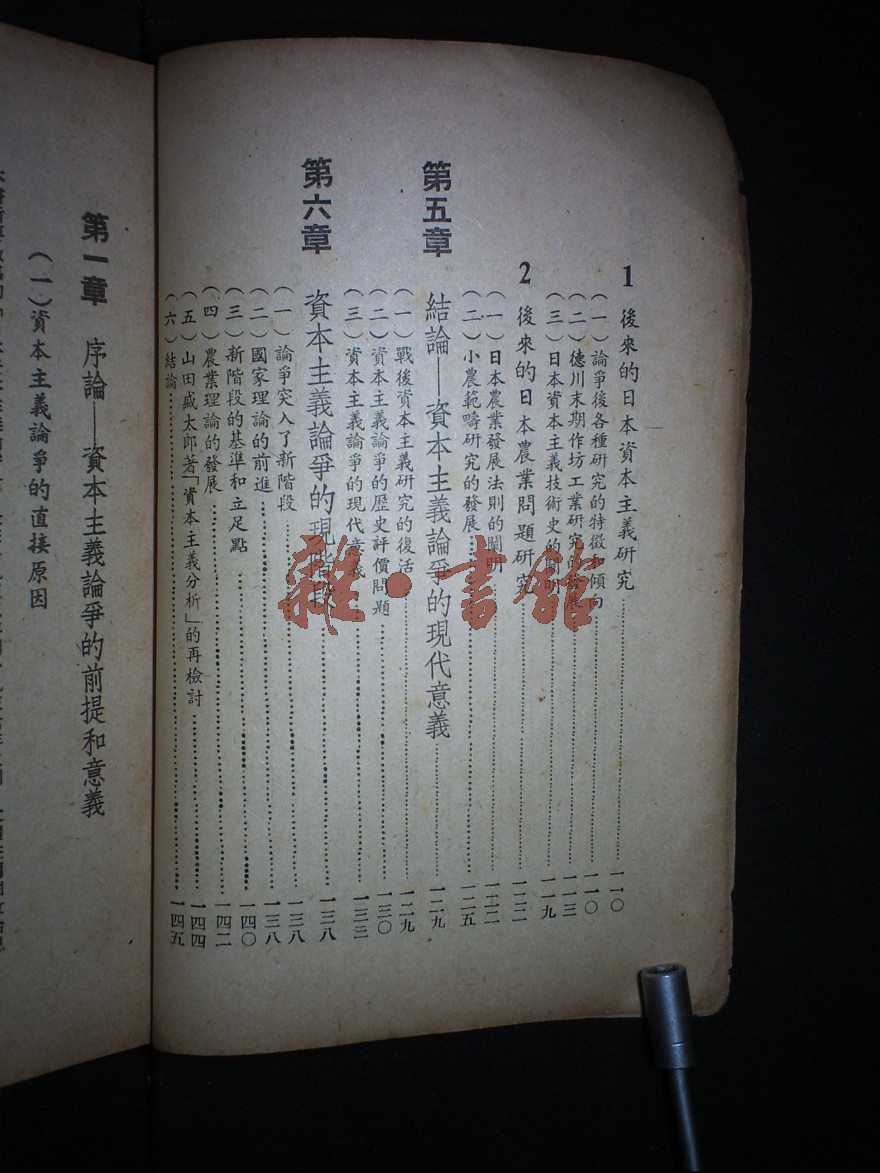 1 後來的日本資本主義研究……一一〇
(一)論爭後各種研究的特徵和傾向……一一〇
(二)德川末期作坊工業研究的發展……一一三
(三)日本資本主義技術史的闡明……一一九
2 後來的日本農業問題研究……一二二
(一)日本農業發展法則的闡明……一二二
(二)小農範疇研究的發展……一二五
第五章 結論——資本主義論爭的現代意義……一二九
(一)戰後資本主義研究的復活……一二九
(二)資本主義論爭的歷史評價問題……一三〇
(三)資本主義論爭的現代意義……一三三
第六章 資本主義論爭的現階段……一三八
(一)論爭突入了新階段……一三八
(二)國家理論的前進……一三八
(三)新階段的基準和立足點……一四〇
(四)農業理論的發展……一四二
(五)山田盛太郎著「資本主義分析」的再檢討……一四四
(六)結論……一四五
第一章 序論——資本主義論爭的前提和意義
(一)資本主義論爭的直接原因
雜·書館